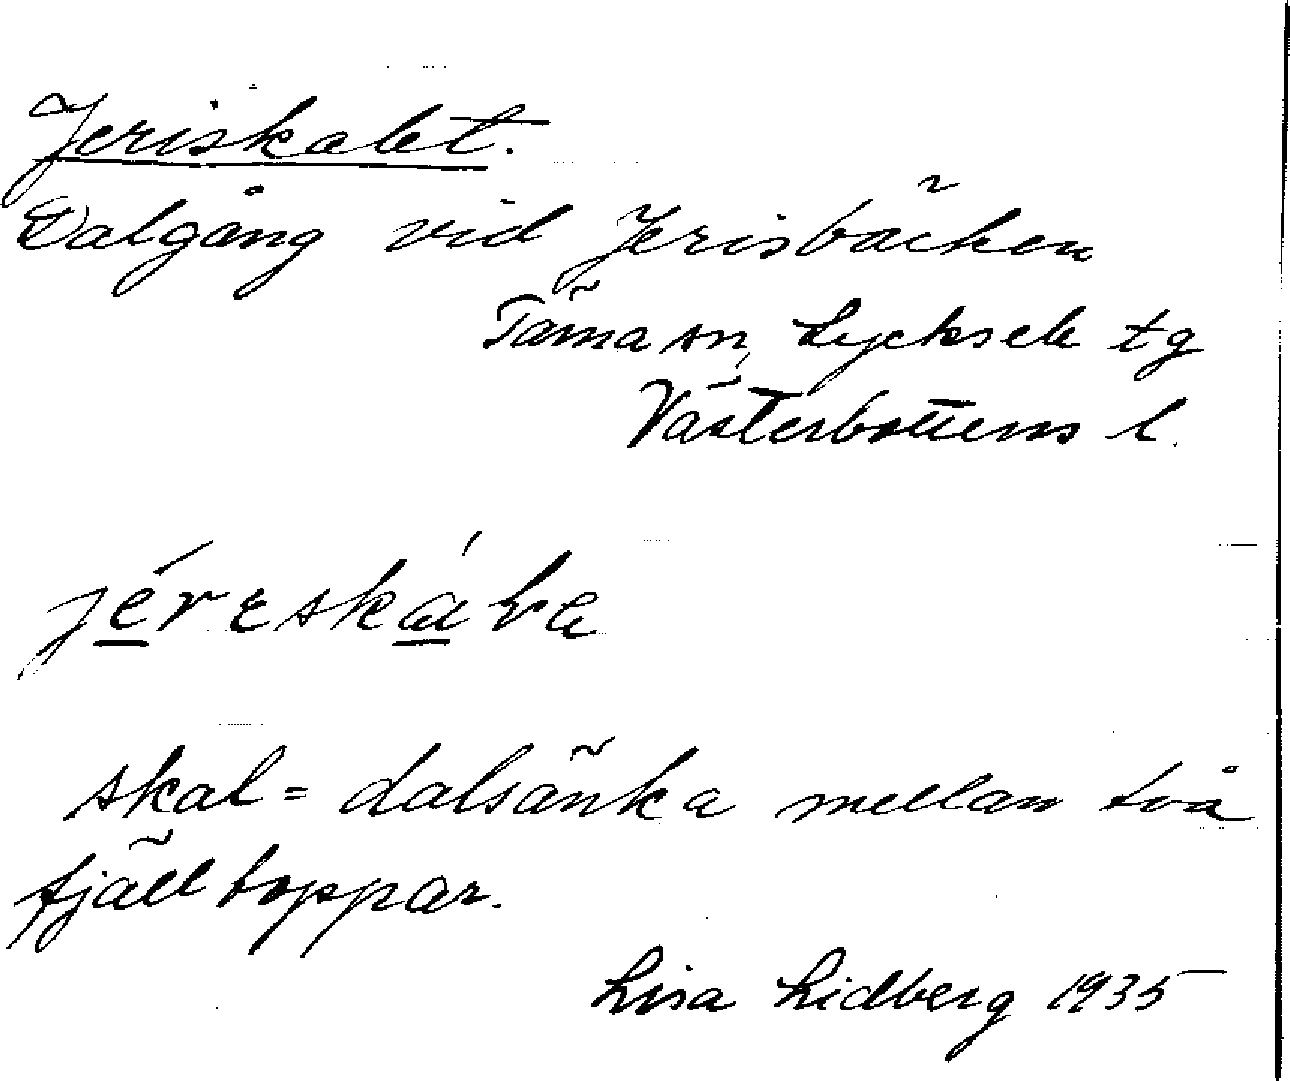 Jeriskalet.
Dalgång vid Jerisbäcken
Tärna sn, Lycksele tg
Västerbottens l.
skal = dalsänka mellan två
fjälltoppar.
Lisa Lidberg 1935